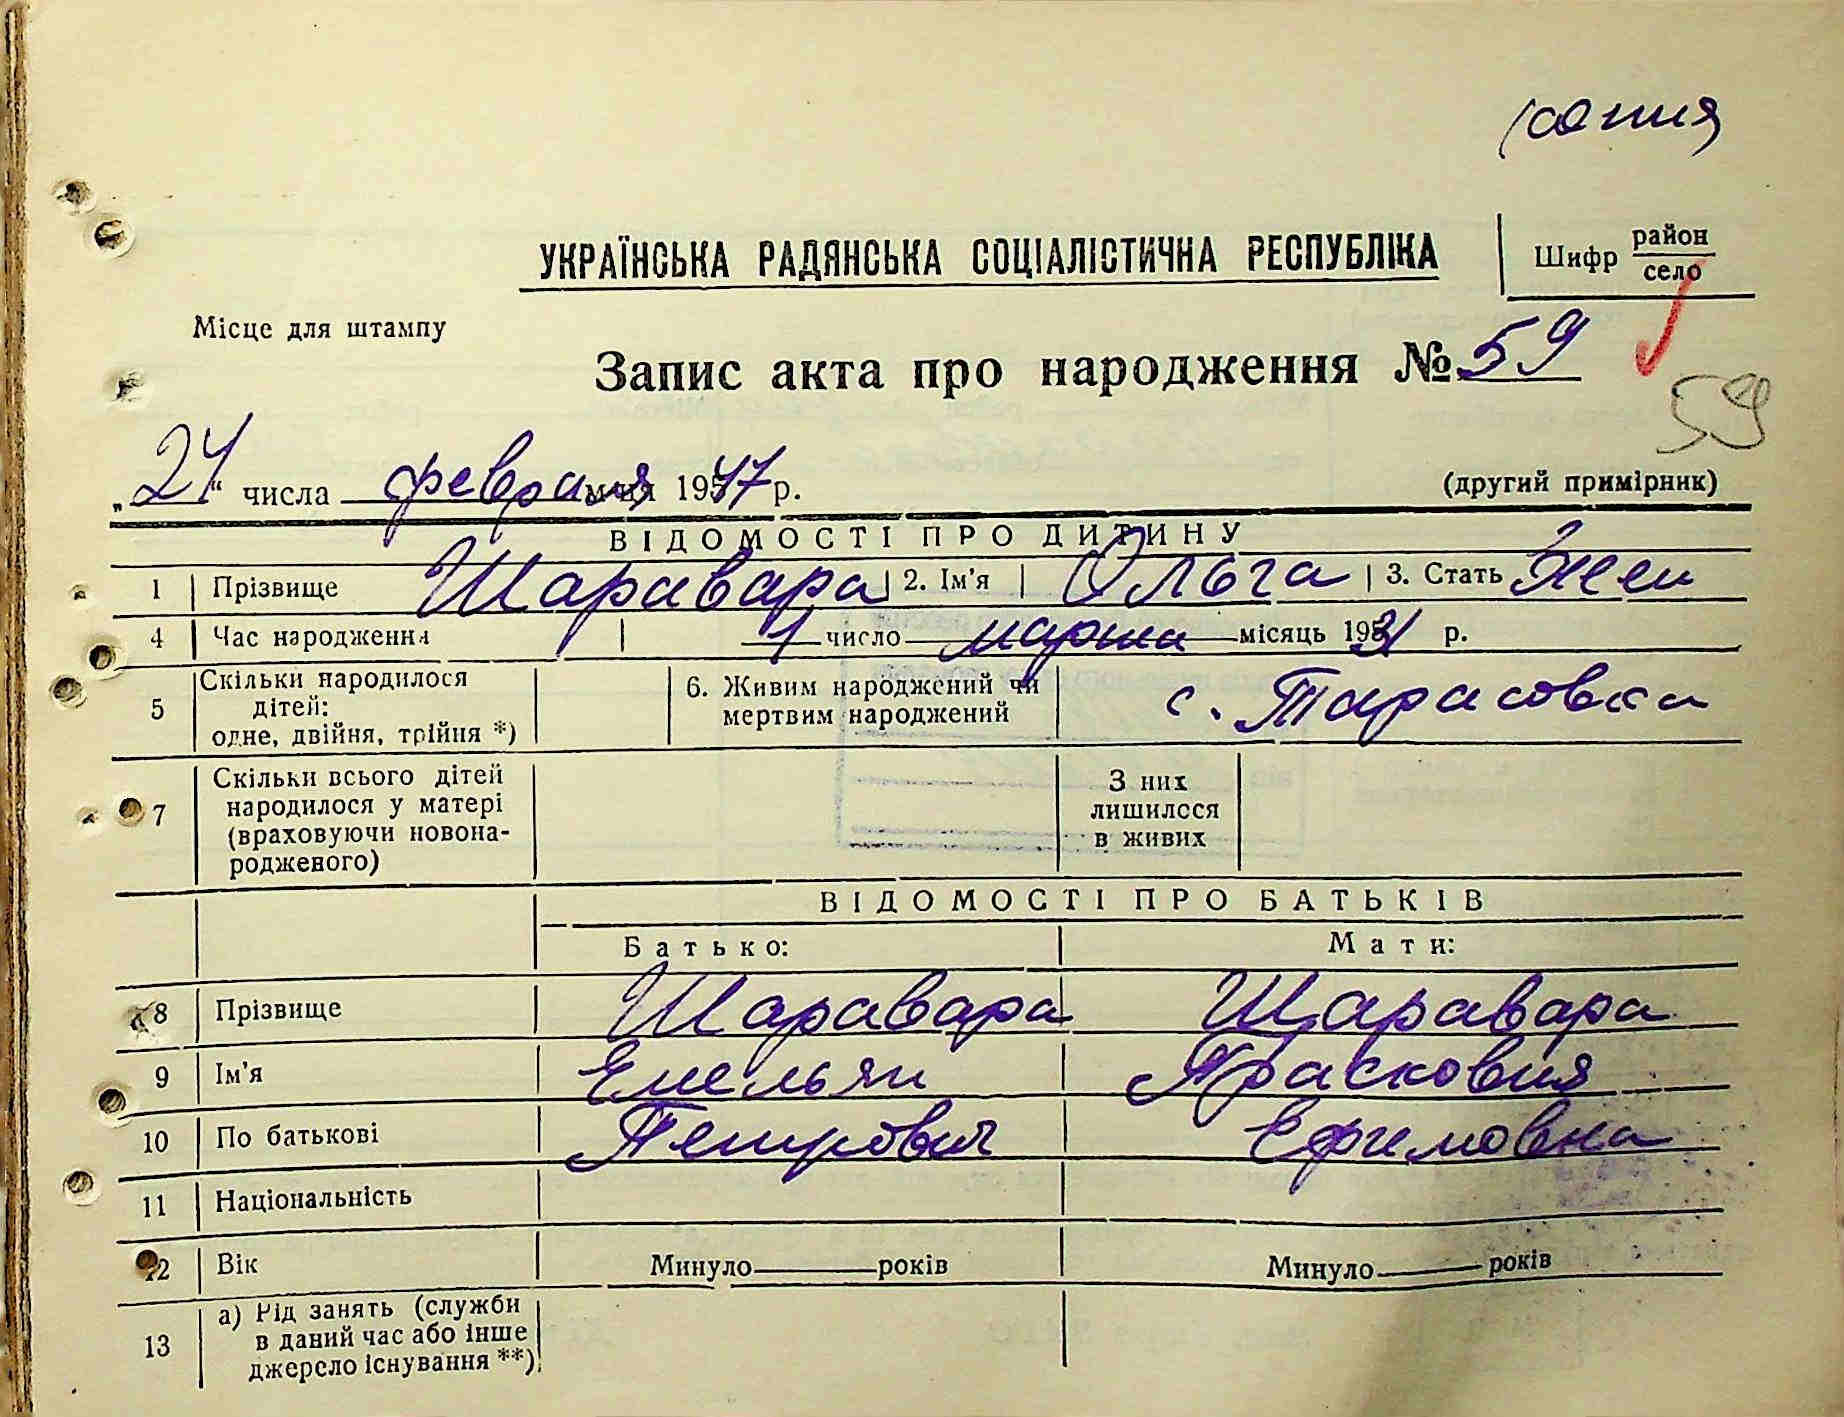 УКРАЇНСЬКА РАДЯНСЬКА СОЦІАЛІСТИЧНА РЕСПУБЛІКА
Шифр район
село
Місце для штампу
Запис акта про народження № 59
59
„24“ числа февраля м-ця 1947 р.
(другий примірник)
ВІДОМОСТІ ПРО ДИТИНУ
1 Прізвище Шаравара 2. Ім'я Ольга 3. Стать Жен
4 Час народження 1 число марта місяць 1931 р.
5 Скільки народилося дітей: одне, двійня, трійня *) 6. Живим народжений чи мертвим народжений с. Тарасовка
7 Скільки всього дітей народилося у матері (враховуючи новонародженого) З них лишилося в живих
ВІДОМОСТІ ПРО БАТЬКІВ
Батько: Мати:
8 Прізвище Шаравара Шаравара
9 Ім'я Емельян Прасковия
10 По батькові Петрович Ефимовна
11 Національність
12 Вік Минуло років Минуло років
13 а) Рід занять (служби в даний час або інше джерело існування **)